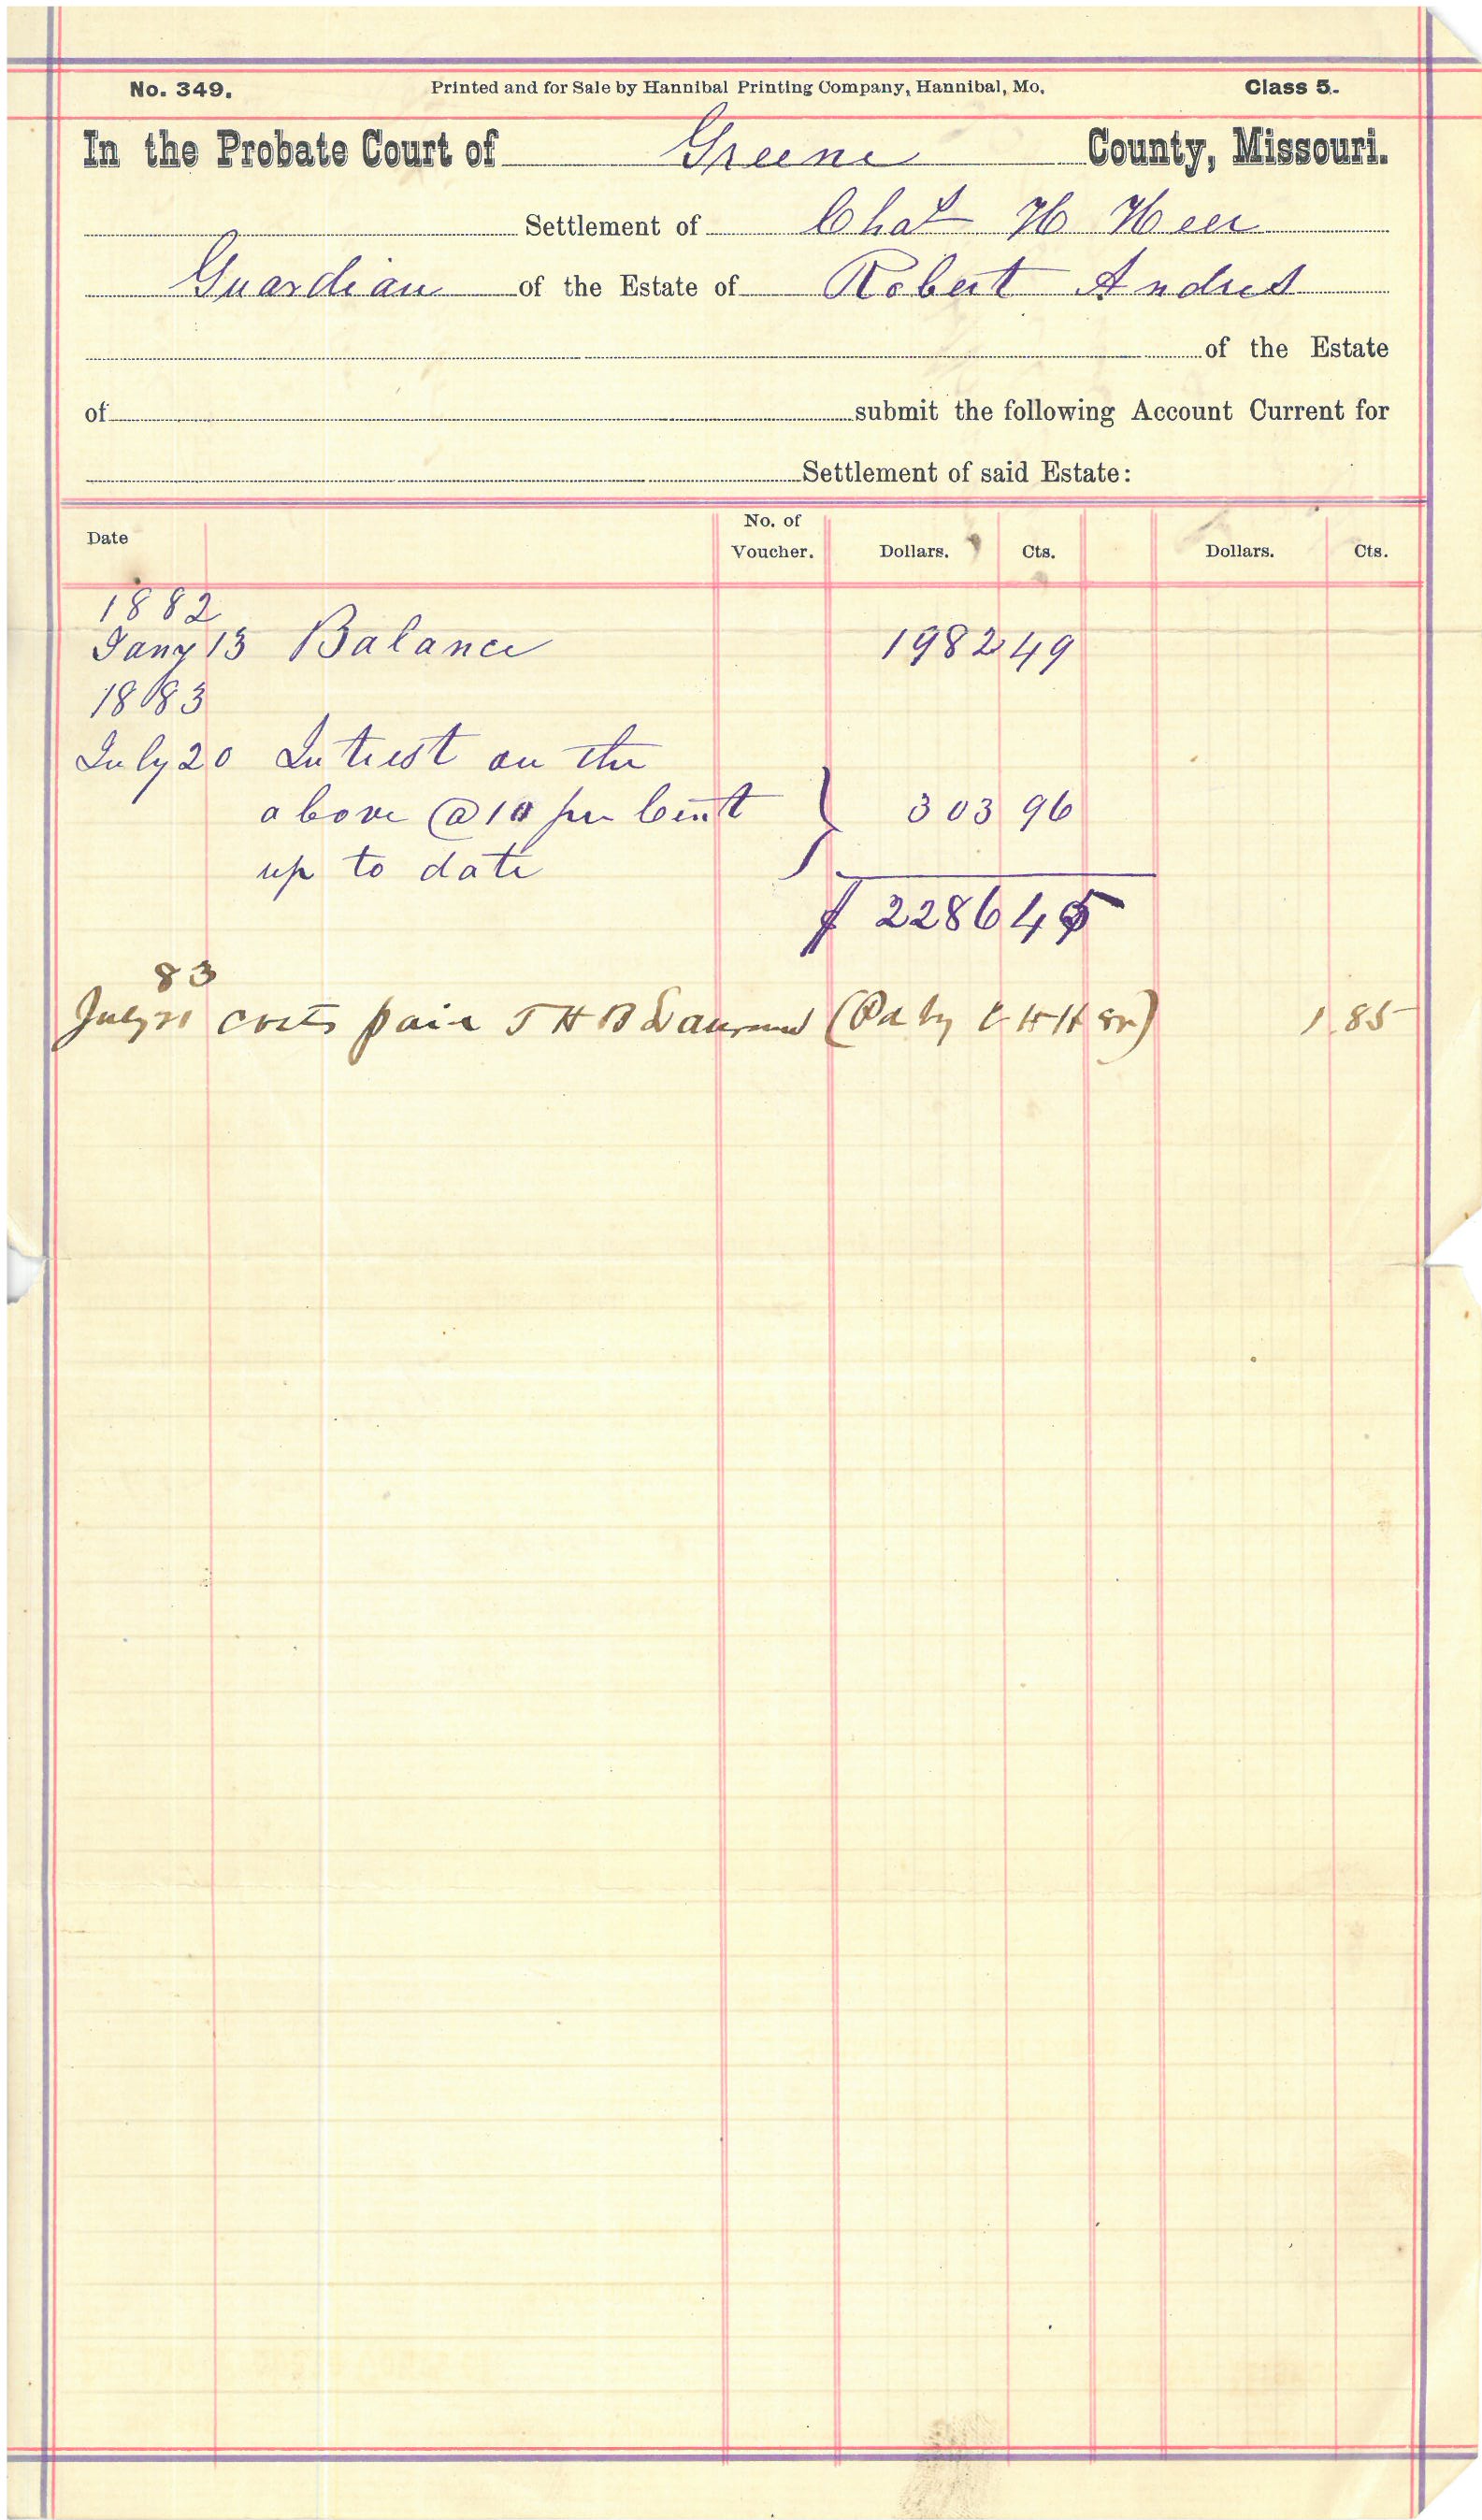 No. 349. Printed and for Sale by Hannibal Printing Company, Hannibal, Mo. Class 5.
In the Probate Court of Greene County, Missouri.
Settlement of Chas H Heer
Guardian of the Estate of Robert Andres
of the Estate
of submit the following Account Current for
Settlement of said Estate:
Date No. of Voucher. Dollars. Cts. Dollars. Cts.
1882
Jany 13 Balance 1982 49
1883
July 20 Intrest on the
above @ 10 per Cent } 303 96
up to date
$ 2286 45
83
July 21 costs paid J H B (Pd by C H H Sr) 1.85